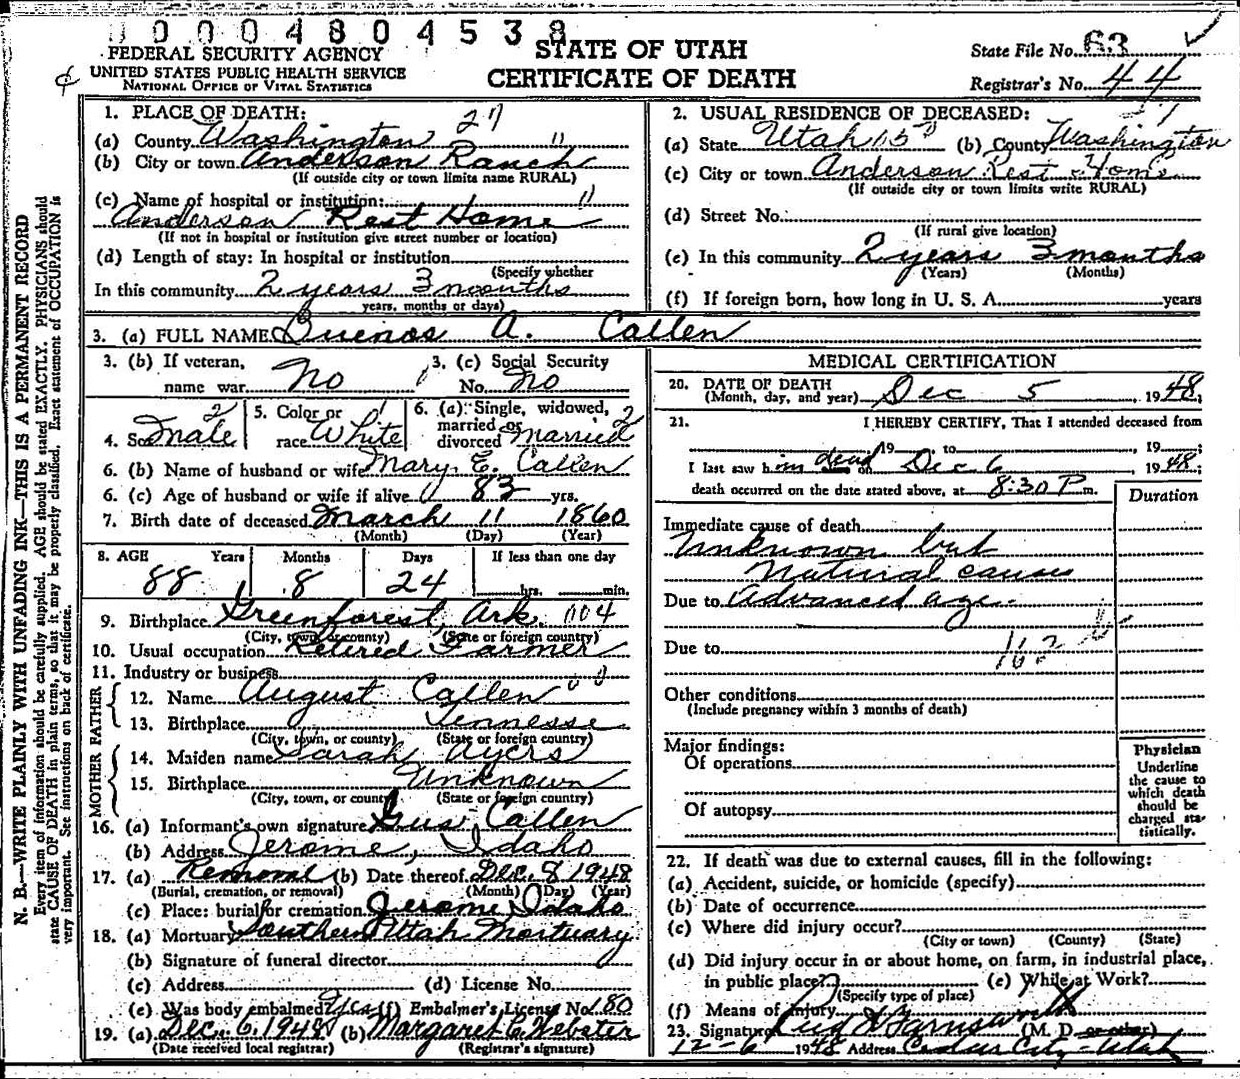 00004804538
FEDERAL SECURITY AGENCY
UNITED STATES PUBLIC HEALTH SERVICE
NATIONAL OFFICE OF VITAL STATISTICS
STATE OF UTAH
CERTIFICATE OF DEATH
State File No. 63
Registrar's No. 44
N. B.—WRITE PLAINLY WITH UNFADING INK—THIS IS A PERMANENT RECORD
Every item of information should be carefully supplied. AGE should be stated EXACTLY. PHYSICIANS should
state CAUSE OF DEATH in plain terms, so that it may be properly classified. Exact statement of OCCUPATION is
very important. See instructions on back of certificate.
1. PLACE OF DEATH: 27
(a) County Washington
(b) City or town Anderson Ranch
(If outside city or town limits name RURAL)
(c) Name of hospital or institution:
Anderson Rest Home
(If not in hospital or institution give street number or location)
(d) Length of stay: In hospital or institution
(Specify whether
In this community 2 years 3 months
years, months or days)
2. USUAL RESIDENCE OF DECEASED:
(a) State Utah (b) County Washington
(c) City or town Anderson Rest Home
(If outside city or town limits write RURAL)
(d) Street No.
(If rural give location)
(e) In this community 2 years 3 months
(Years) (Months)
(f) If foreign born, how long in U. S. A. years
3. (a) FULL NAME Buenos A. Callen
3. (b) If veteran, name war No
3. (c) Social Security No. No
4. Sex Male 2
5. Color or race White
6. (a) Single, widowed, married or divorced Married 2
6. (b) Name of husband or wife Mary E. Callen
6. (c) Age of husband or wife if alive 83 yrs.
7. Birth date of deceased March 11 1860
(Month) (Day) (Year)
8. AGE Years Months Days If less than one day
88 8 24 hrs. min.
9. Birthplace Greenforest, Ark. 004
(City, town or county) (State or foreign country)
10. Usual occupation Retired Farmer
11. Industry or business
FATHER
12. Name August Callen
13. Birthplace Tennesse
(City, town, or county) (State or foreign country)
MOTHER
14. Maiden name Sarah Ayers
15. Birthplace Unknown
(City, town, or county) (State or foreign country)
16. (a) Informant's own signature Gus Callen
(b) Address Jerome, Idaho
17. (a) Removal (b) Date thereof Dec. 8 1948
(Burial, cremation, or removal) (Month) (Day) (Year)
(c) Place: burial or cremation Jerome, Idaho
18. (a) Mortuary Southern Utah Mortuary
(b) Signature of funeral director
(c) Address (d) License No.
(e) Was body embalmed Yes (f) Embalmer's License No. 180
19. (a) Dec. 6. 1948 (b) Margaret C. Webster
(Date received local registrar) (Registrar's signature)
MEDICAL CERTIFICATION
20. DATE OF DEATH
(Month, day, and year) Dec 5, 1948;
21. I HEREBY CERTIFY, That I attended deceased from
, 19 to , 19 ;
I last saw him dead on Dec 6, 1948;
death occurred on the date stated above, at 8:30 P m.
Duration
Immediate cause of death
Unknown but
Natural causes
Due to Advanced age.
Due to 162
Other conditions
(Include pregnancy within 3 months of death)
Major findings:
Of operations
Of autopsy
Physician
Underline
the cause to
which death
should be
charged sta-
tistically.
22. If death was due to external causes, fill in the following:
(a) Accident, suicide, or homicide (specify)
(b) Date of occurrence
(c) Where did injury occur?
(City or town) (County) (State)
(d) Did injury occur in or about home, on farm, in industrial place,
in public place? (e) While at Work?
(Specify type of place)
(f) Means of injury
23. Signature Farnsworth (M. D. or other)
12-6 1948 Address Cedar City - Utah